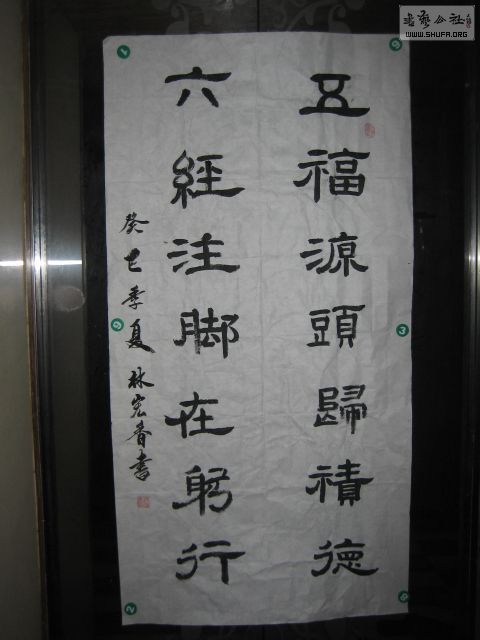 五福源頭歸積德
六經注脚在躬行
癸巳季夏林宏香書
书艺公社
WWW.SHUFA.ORG